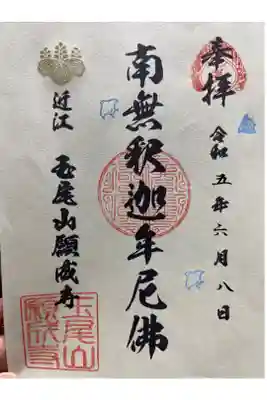 奉拝
令和五年六月八日
南無釈迦牟尼佛
近江
玉尾山願成寺
玉尾山
願成寺